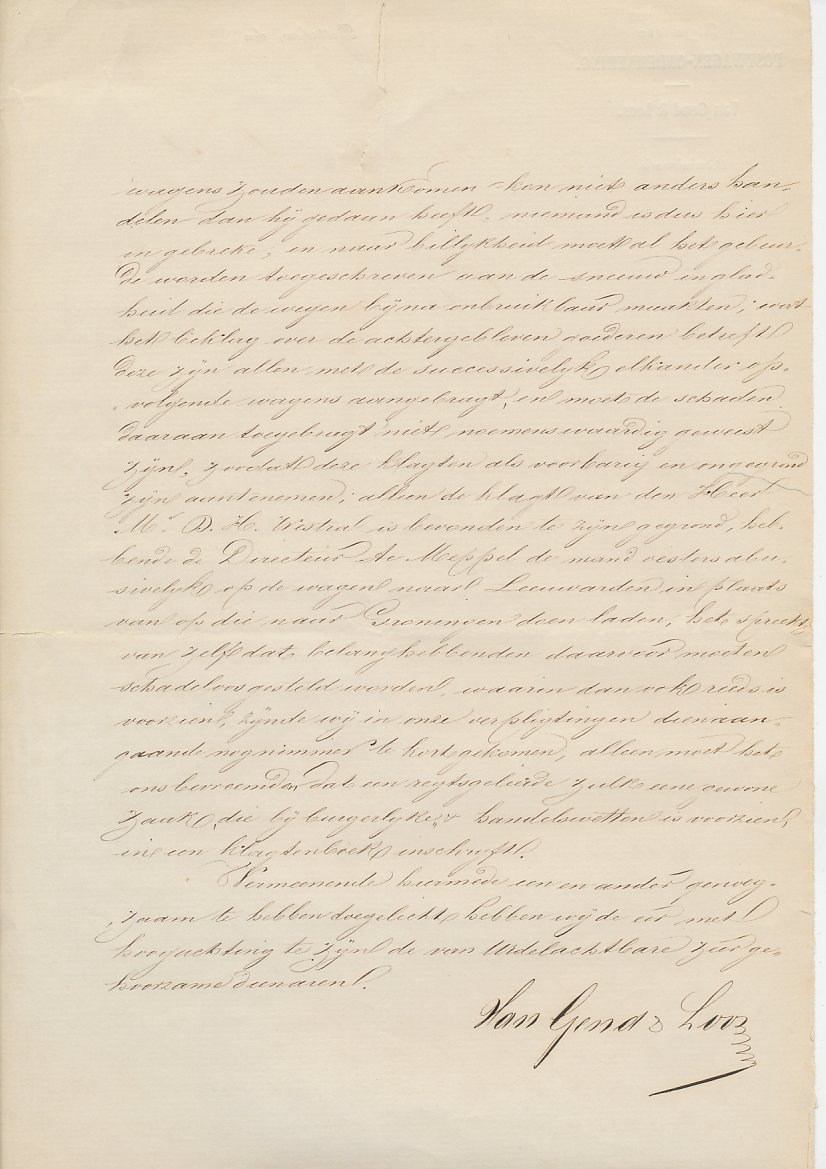 wagens zouden aankomen - kon niet anders han-
delen dan hij gedaan heeft, niemand is dus hier
in gebreke; en naar billykheid moet al het gebeur-
de worden toegeschreven aan de sneeuw en glad-
heid die de wegen byna onbruikbaar maakten; wat
het beklag over de achtergebleven goederen betreft
deze zyn allen met de successivelyk elkander op-
volgende wagens aangebragt, en moet de schaden
daaraan toegebragt niet noemenswaardig geweest
zyn, zoodat deze klagten als voorbarig en ongegrond
zyn aantenemen; alleen de klagt van den Heer
Mr. D. H. Westra is bevonden te zyn gegrond, heb-
bende de Directeur te Meppel de mand oesters abu-
sivelyk op de wagen naar Leeuwarden in plaats
van op die naar Groningen doen laden, het spreekt
van zelf dat belanghebbenden daarvoor moeten
schadeloos gesteld worden, waarin dan ook reeds is
voorzien, zynde wy in onze verpligtingen dienaan-
gaande nog nimmer te kort gekomen, alleen moet het
ons bevreemden dat een regtsgeleerde zulk eene gewone
zaak, die by burgerlyke & handelswetten is voorzien,
in een klagtenboek inschryft.
Vermeenende hiermede een en ander genoeg-
zaam te hebben toegelicht hebben wy de eer met
hoogachting te zyn de van UEdelachtbare zeer ge-
hoorzame dienaren.
Van Gend & Loos